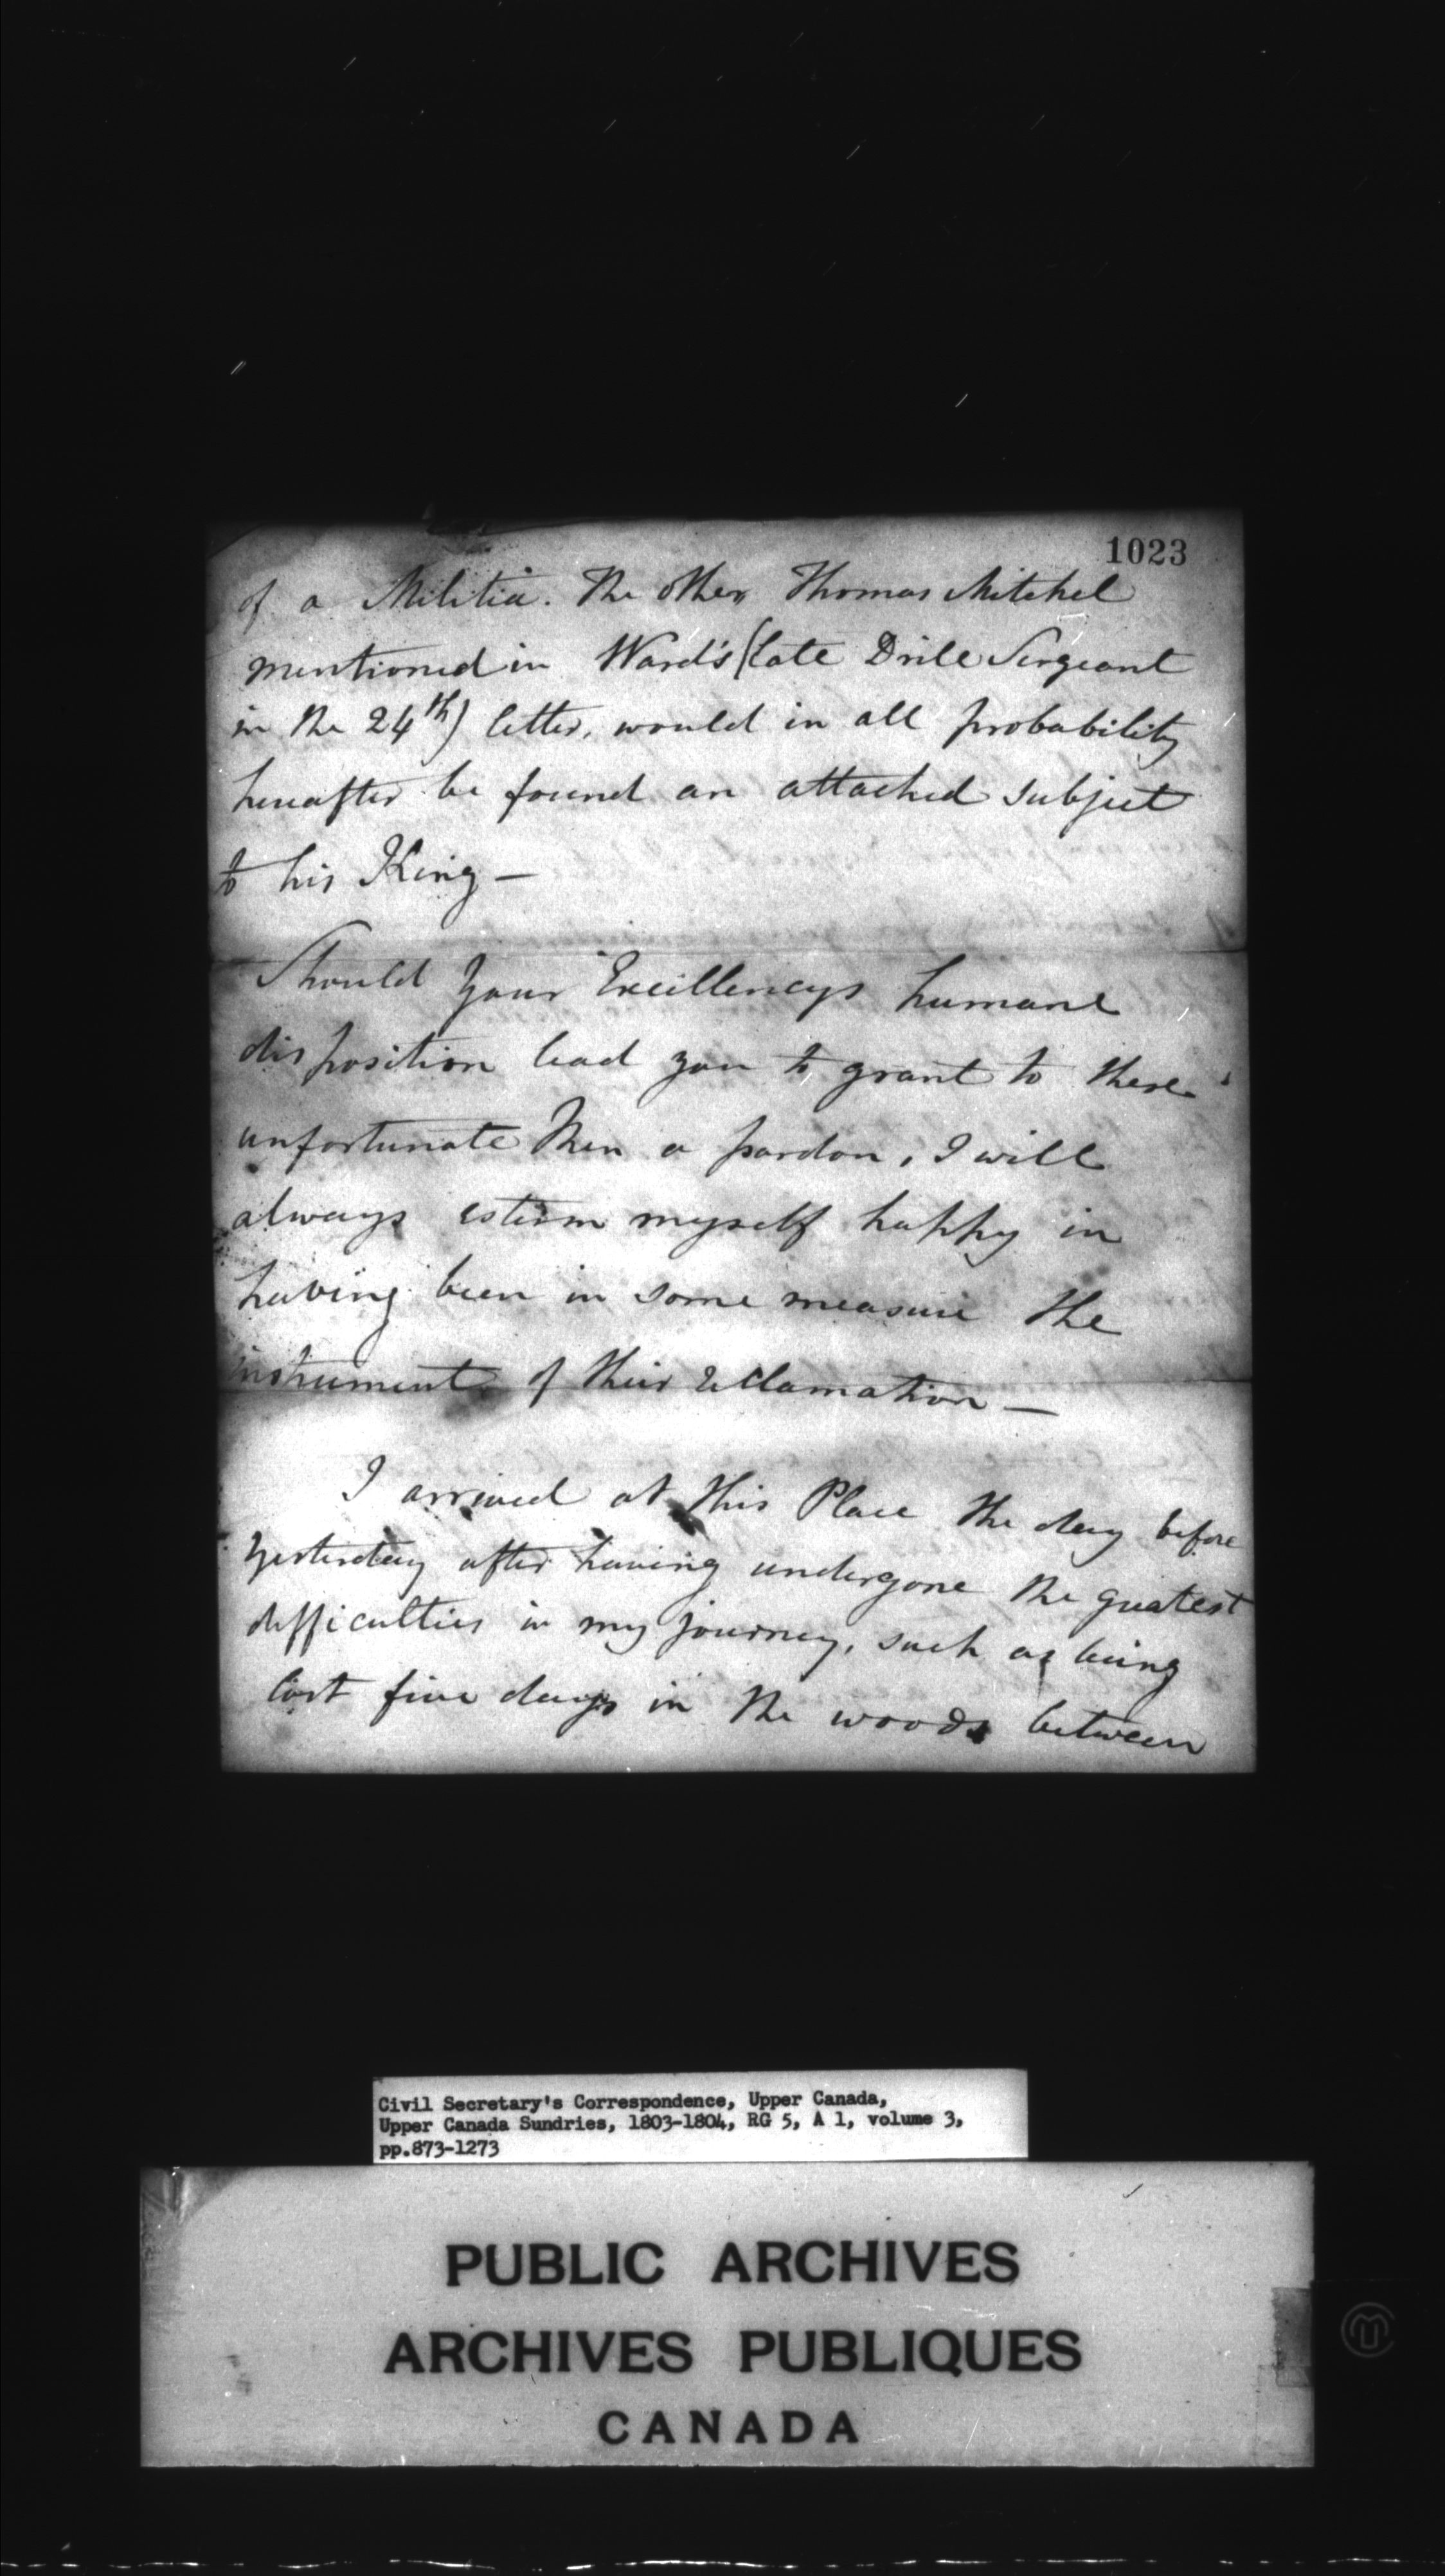 1023
of a Militia. The other Thomas Mitchel
mentioned in Ward's (late Drill Sergeant
in the 24th) letter, would in all probability
hereafter be found an attached subject
to his King —
Should your Excellencys humane
disposition lead you to grant to these
unfortunate Men a pardon, I will
always esteem myself happy in
having been in some measure the
instrument of their reclamation —
I arrived at this Place the day before
Yesterday after having undergone the greatest
difficulties in my journey, such as being
lost five days in the woods between
Civil Secretary's Correspondence, Upper Canada,
Upper Canada Sundries, 1803-1804, RG 5, A 1, volume 3,
pp.873-1273
PUBLIC ARCHIVES
ARCHIVES PUBLIQUES
CANADA